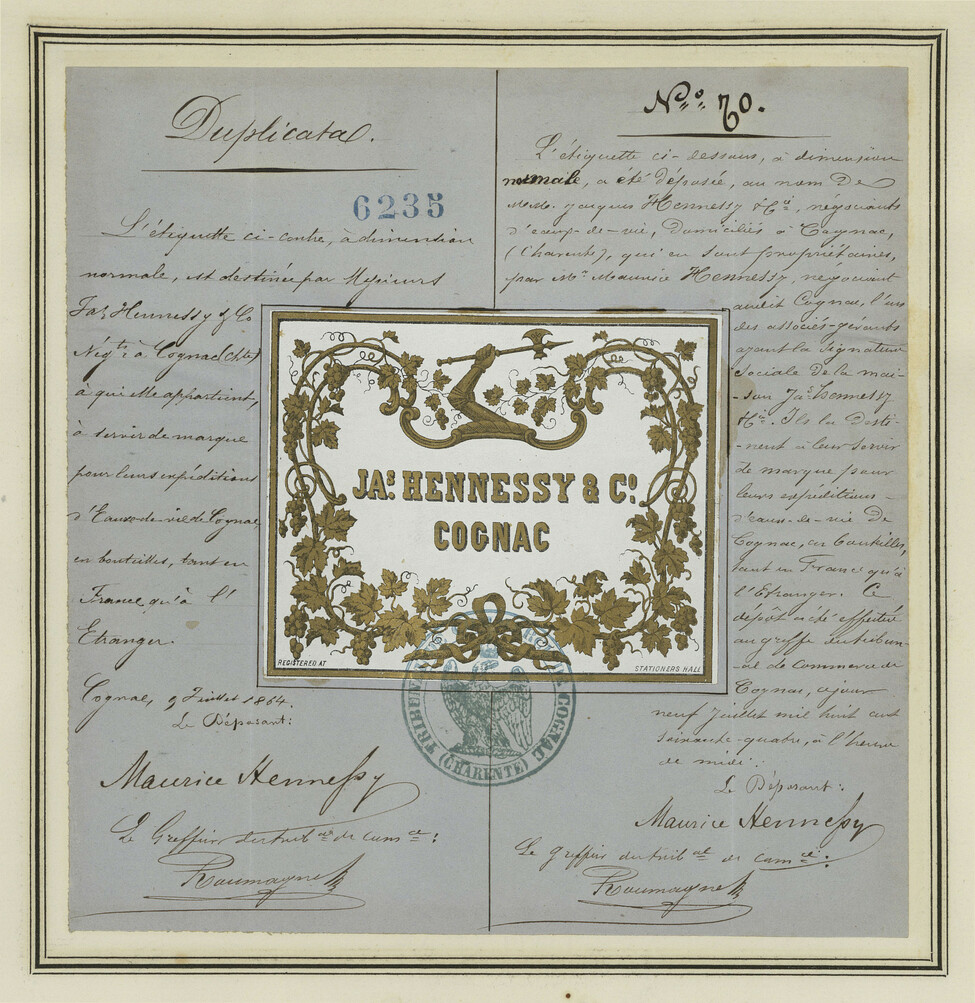 Duplicata.
6235
L'étiquette ci-contre, à dimention
normale, est destinée par Messieurs
Jas Hennessy & Co
Négts à Cognac (Chte)
à qui elle appartient,
à servir de marque
pour leurs expéditions
d'Eaux-de-vie de Cognac,
en bouteilles, tant en
France qu'à l'
Etranger.
Cognac, 9 Juillet 1864.
Le Déposant:
Maurice Hennessy
Le Greffier du tribal de comce:
Roumagne
No. 70.
L'étiquette ci-dessous, à dimension
normale, a été déposée, au nom de
MM. Jacques Hennessy & Cie, négociants
d'eaux-de-vie, domiciliés à Cognac,
(Charente), qui en sont propriétaires,
par Mr Maurice Hennessy, négociant
audit Cognac, l'un
des associés-gérants
ayant la signature
sociale de la mai-
-son Jas Hennessy
& Cie. Ils la desti-
-nent à leur servir
de marque pour
leurs expéditions
d'eaux-de-vie de
Cognac, en bouteilles,
tant en France qu'à
l'Etranger. Ce
dépôt a été effectué
au greffe du tribun-
-al de commerce de
Cognac, ce jour
neuf Juillet mil huit cent
soixante-quatre, à l'heure
de midi.
Le Déposant:
Maurice Hennessy
Le greffier du tribal de comce:
Roumagne
JAS. HENNESSY & CO.
COGNAC
REGISTERED AT
STATIONERS HALL
TRIBUNAL DE COGNAC
(CHARENTE)